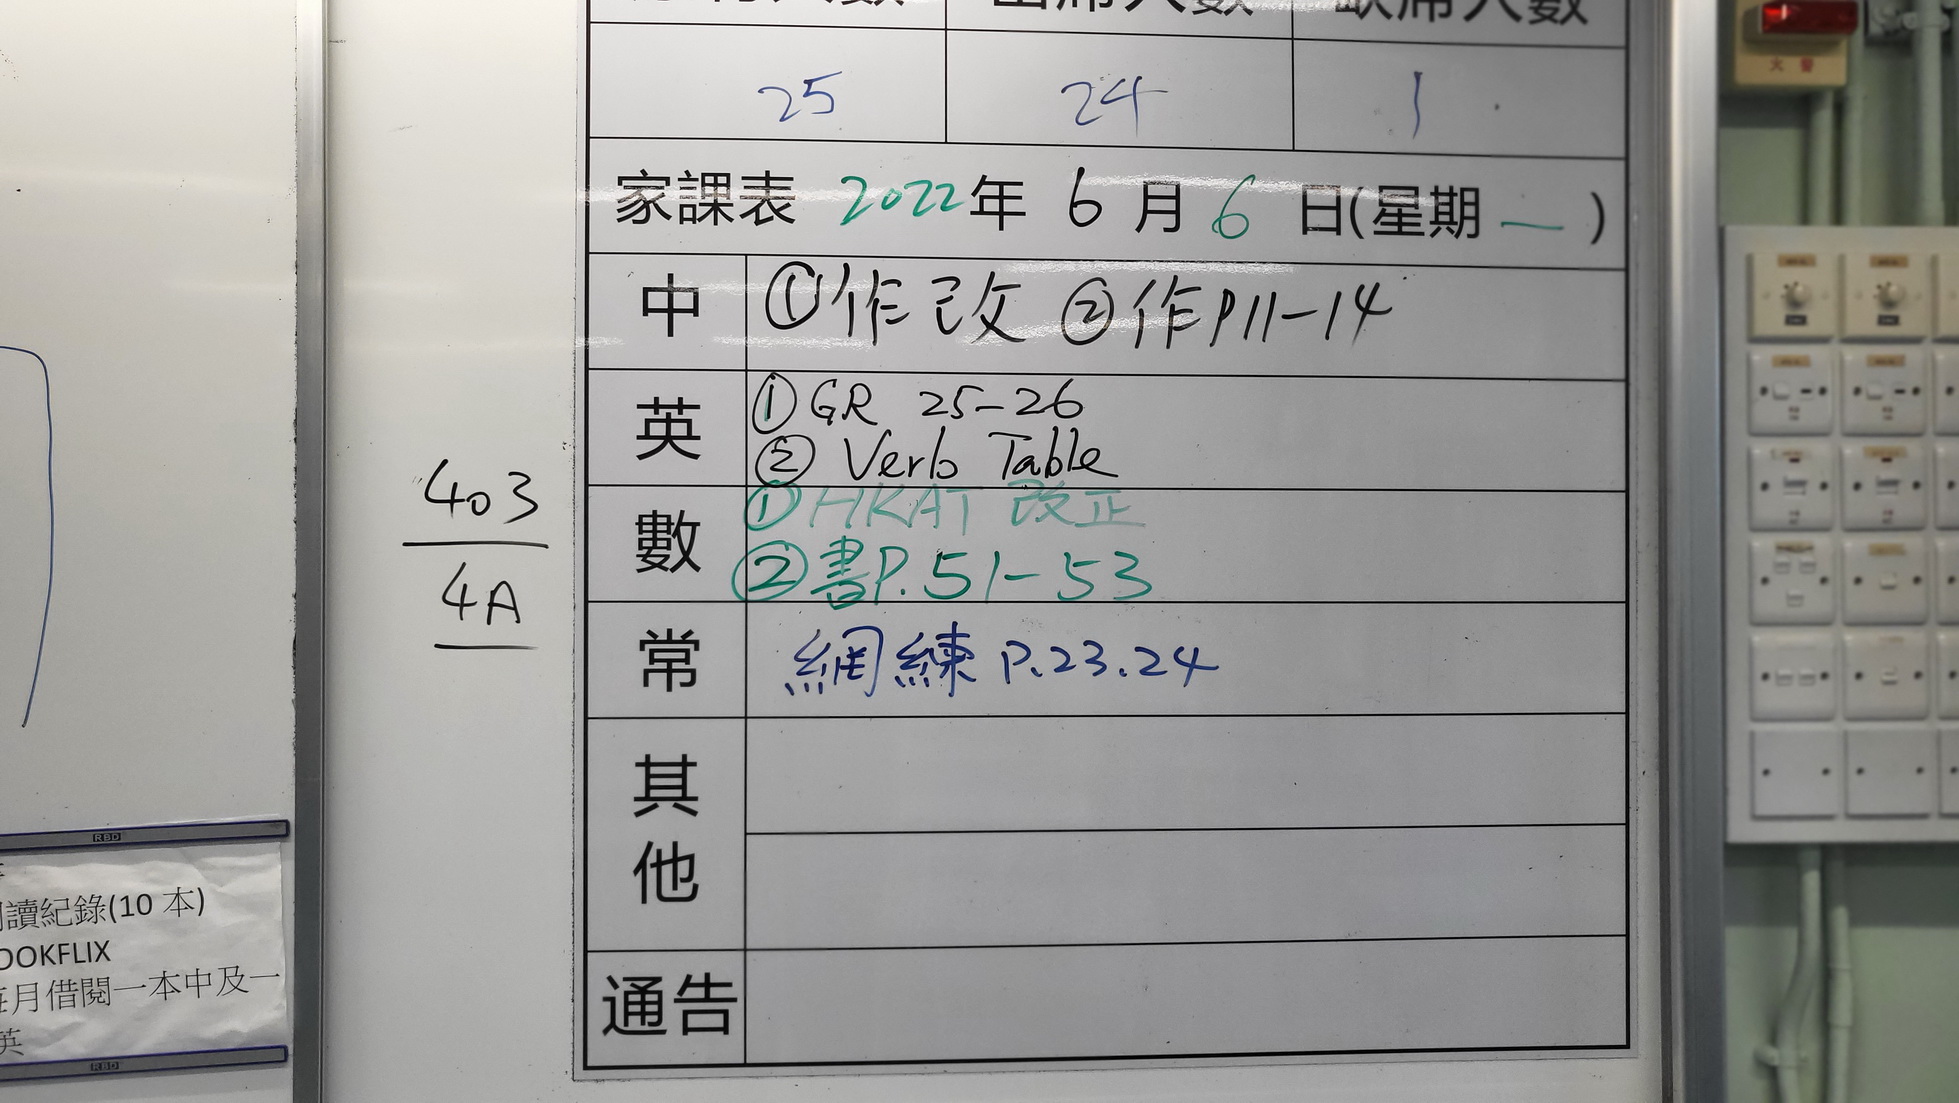 出席人數
缺席人數
25
24
1
家課表 2022年 6 月 6 日(星期 一 )
中
①作改 ②作P11-14
英
① GR 25-26
② Verb Table
數
① HKAT 改正
② 書P.51-53
常
網練 P.23.24
其他
通告
403
4A
RBD
讀紀錄(10 本)
OOKFLIX
每月借閱一本中及一
英
RBD
火警